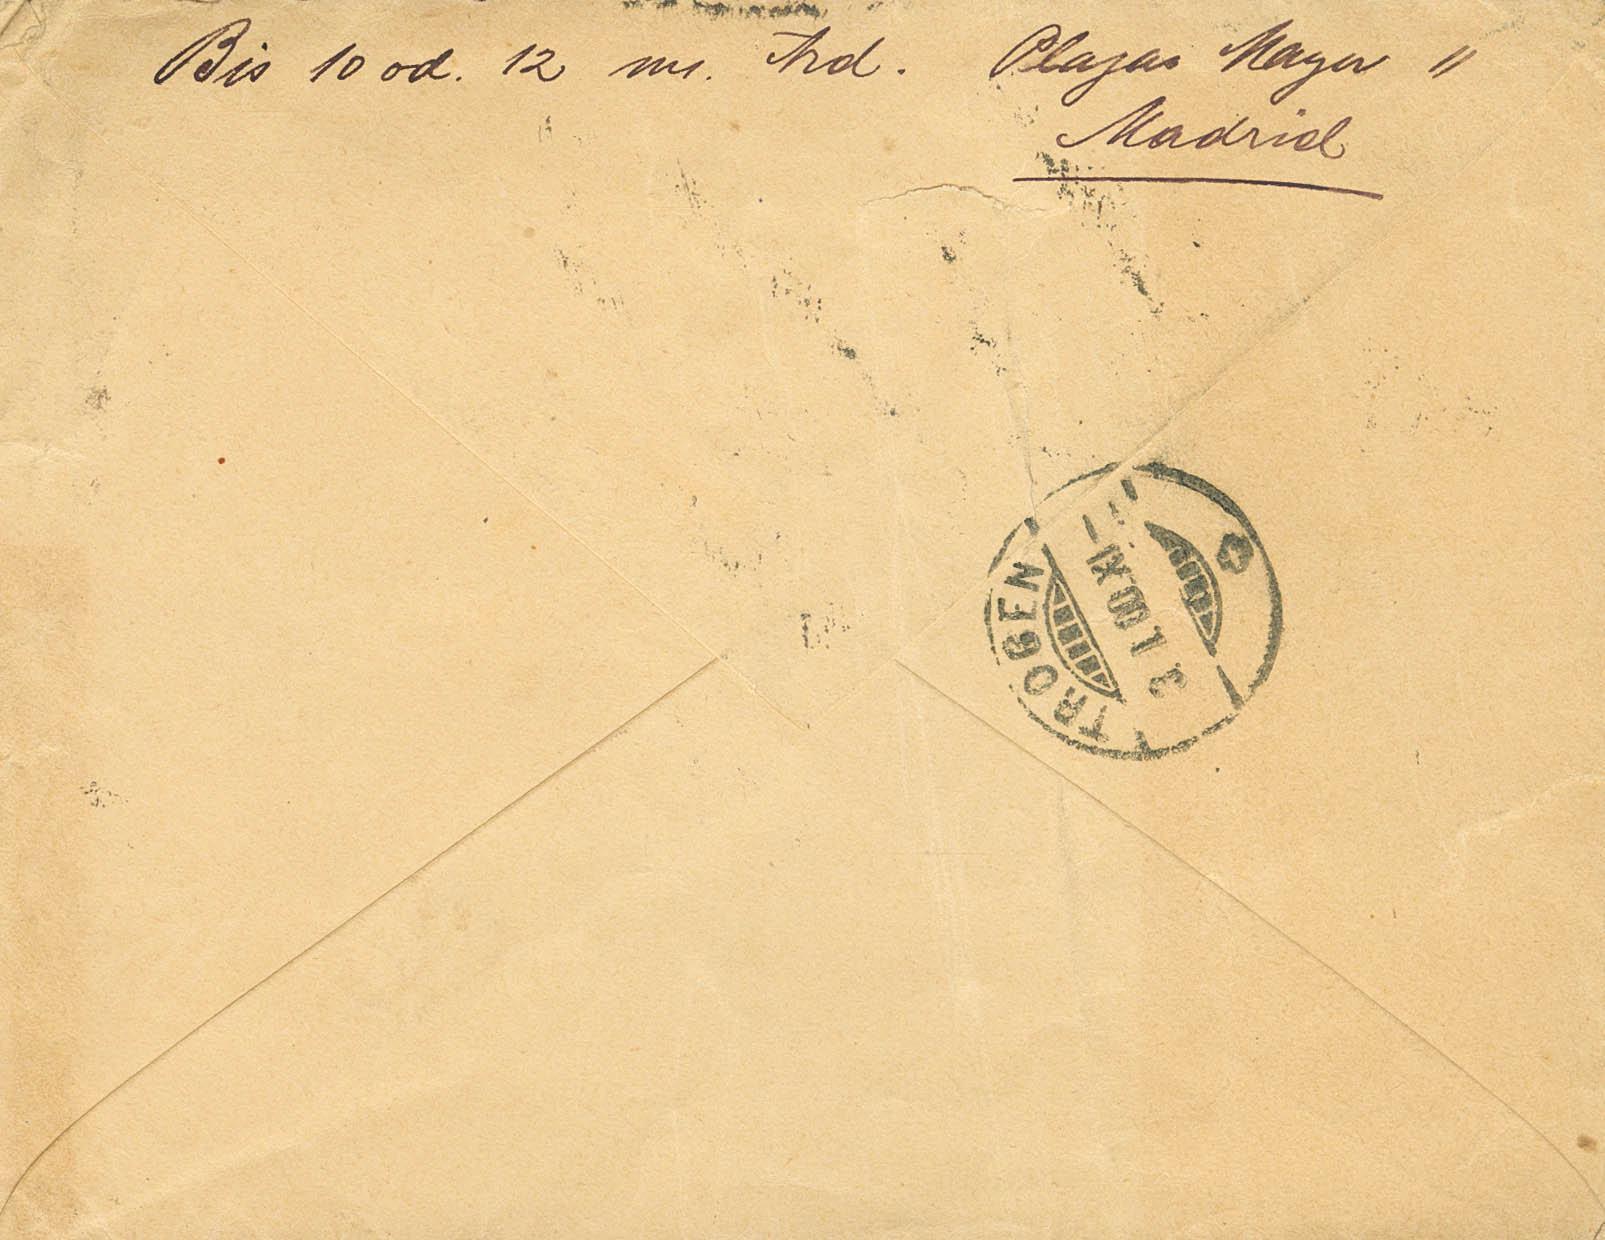 Bis 10 od. 12 m. Ard. Plazas Mayor 11
Madrid
TROGEN
3 I 00.XI-